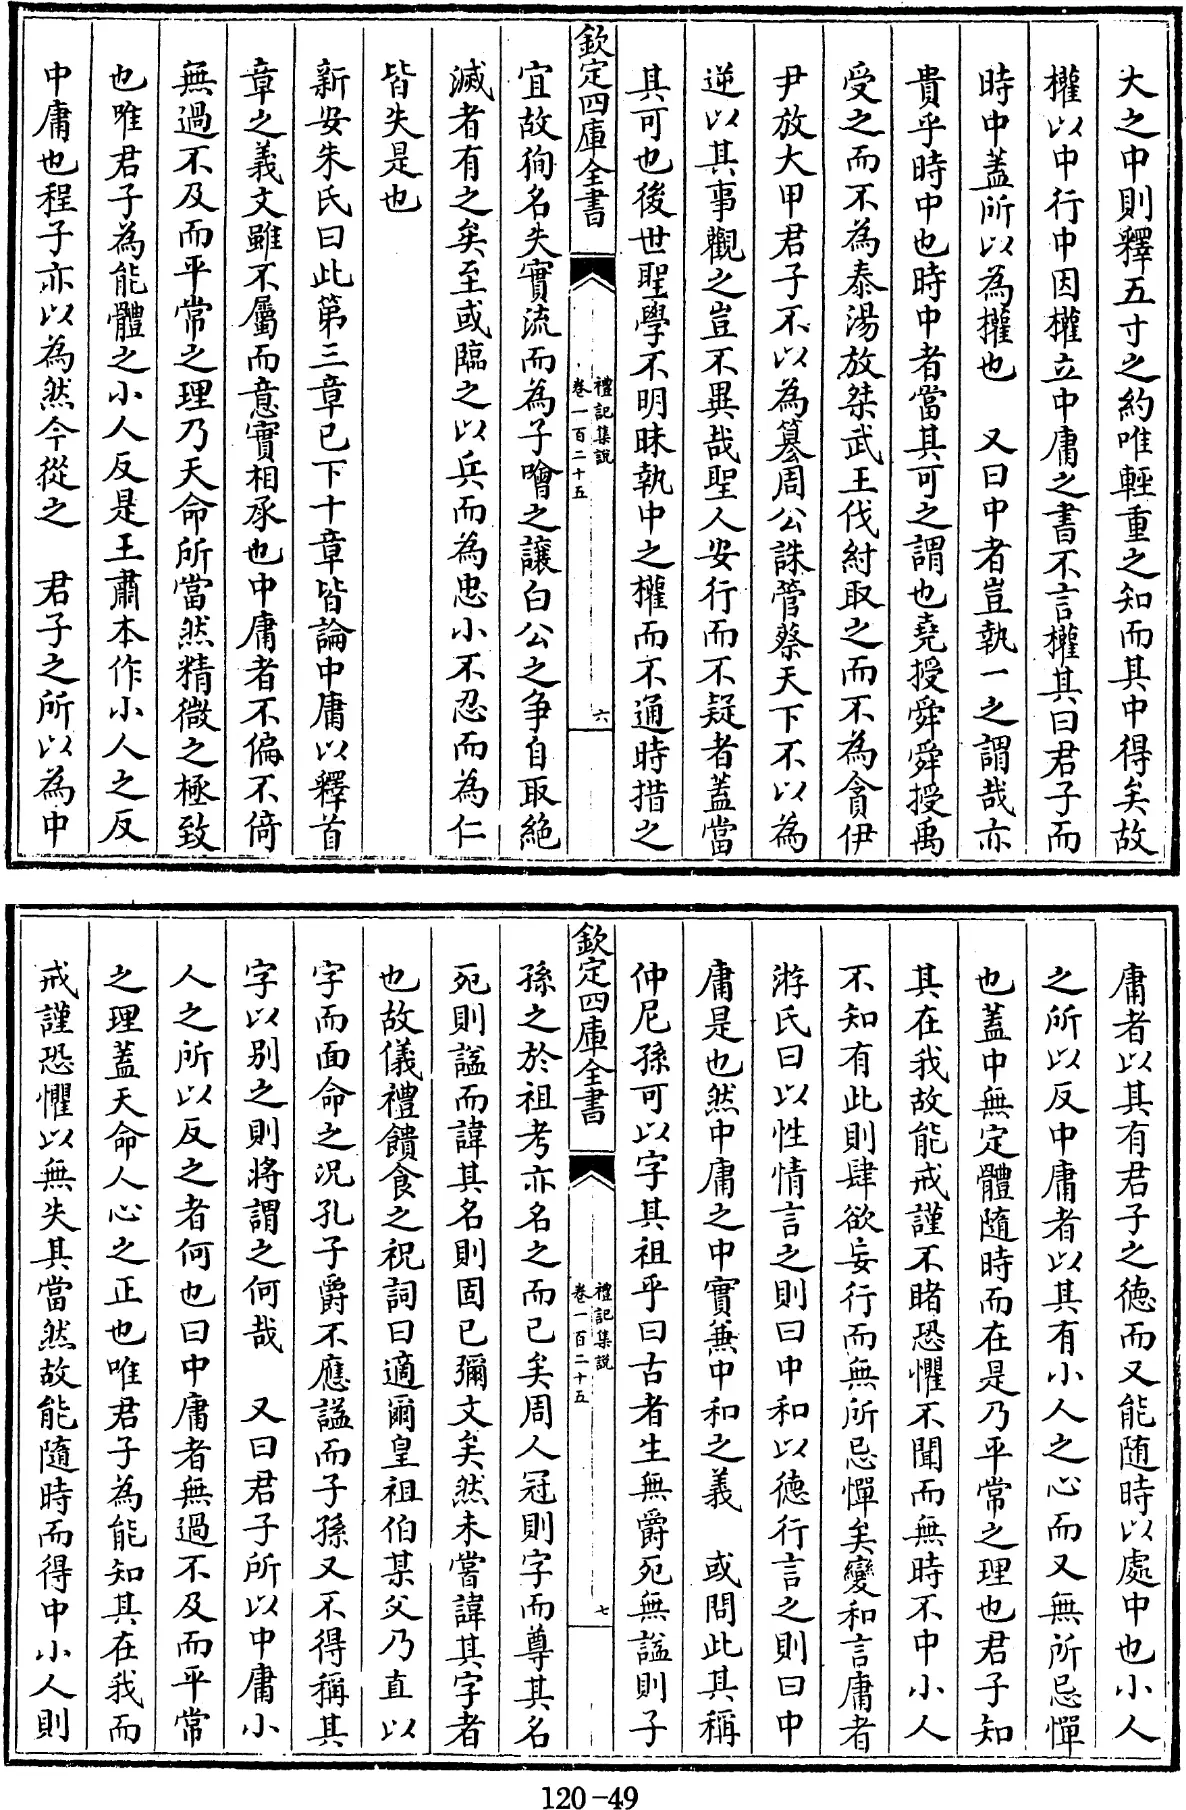 大之中則釋五寸之約唯輕重之知而其中得矣故
權以中行中因權立中庸之書不言權其曰君子而
時中蓋所以為權也　又曰中者豈執一之謂哉亦
貴乎時中也時中者當其可之謂也堯授舜舜授禹
受之而不為泰湯放桀武王伐紂取之而不為貪伊
尹放大甲君子不以為簒周公誅管蔡天下不以為
逆以其事觀之豈不異哉聖人安行而不疑者蓋當
其可也後世聖學不明昧執中之權而不通時措之
欽定四庫全書
禮記集說
卷一百二十五
六
宜故徇名失實流而為子噲之讓白公之争自取絶
滅者有之矣至或臨之以兵而為忠小不忍而為仁
皆失是也
新安朱氏曰此第三章已下十章皆論中庸以釋首
章之義文雖不屬而意實相承也中庸者不偏不倚
無過不及而平常之理乃天命所當然精微之極致
也唯君子為能體之小人反是王肅本作小人之反
中庸也程子亦以為然今從之　君子之所以為中
庸者以其有君子之德而又能随時以處中也小人
之所以反中庸者以其有小人之心而又無所忌憚
也蓋中無定體隨時而在是乃平常之理也君子知
其在我故能戒謹不睹恐懼不聞而無時不中小人
不知有此則肆欲妄行而無所忌憚矣變和言庸者
游氏曰以性情言之則曰中和以德行言之則曰中
庸是也然中庸之中實兼中和之義　或問此其稱
仲尼孫可以字其祖乎曰古者生無爵死無謚則子
欽定四庫全書
禮記集說
卷一百二十五
七
孫之於祖考亦名之而已矣周人冠則字而尊其名
死則謚而諱其名則固已彌文矣然未嘗諱其字者
也故儀禮饋食之祝詞曰適爾皇祖伯某父乃直以
字而面命之况孔子爵不應謚而子孫又不得稱其
字以别之則將謂之何哉　又曰君子所以中庸小
人之所以反之者何也曰中庸者無過不及而平常
之理蓋天命人心之正也唯君子為能知其在我而
戒謹恐懼以無失其當然故能隨時而得中小人則
120-49